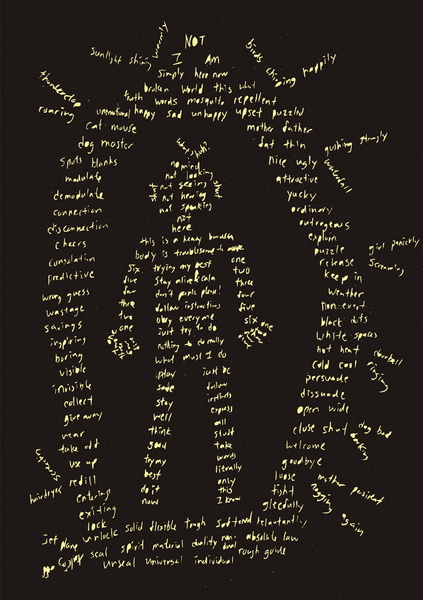 NOT
I AM
simply here now
sunlight shining
birds chirping happily
broken world this what
truth words mosquito repellent
unemotional happy sad unhappy upset puzzled
thunderclap
roaring
cat mouse
mother father
dog master
fat thin
gushing
waterfall
spots blanks
nice ugly
modulate
attractive
demodulate
yucky
connection
ordinary
disconnection
outrageous
cheers
explain
consolation
puzzle
predictive
release
girl
screaming
wrong guess
keep in
wastage
weather
savings
non-event
inspiring
black dots
boring
white spaces
visible
hot heat
invisible
cold cool
doorbell
ringing
collect
persuade
give away
dissuade
wear
open wide
take off
close shut
dog bad
use up
welcome
hairdryer
refill
goodbye
entering
loose
mother
again
exiting
tight
gleefully
lock
unlock solid flexible tough softened reluctantly
jet plane
seal spirit material duality non-dual absolute law
unseal universal individual rough guide
no mind
not looking
not seeing
not hearing
not speaking
not
here
this is a heavy burden
body is troublesome
six trying my best one
five stay alive two
four don't panic please! three
three follow instructions four
two obey everyone five
one just try to do six
nothing to do really
what must I do
just be
follow
stay
well
express
think
all
good
stuff
try my
take
best
words
do it
literally
now
only
this
I know